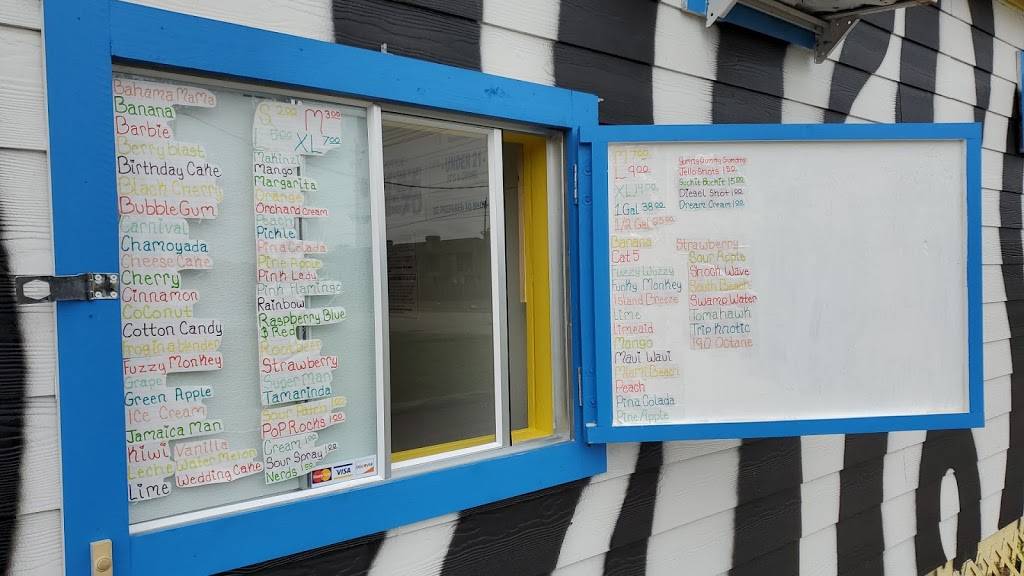 Bahama Mama
Banana
Barbie
Berry blast
Birthday Cake
Black Cherry
Bubble Gum
Carnival
Chamoyada
Cheese Cake
Cherry
Cinnamon
CoConut
Cotton Candy
Frog in a blender
Fuzzy Monkey
Grape
Green Apple
Ice Cream
Jamaica Man
Kiwi
Vanilla
Leche
Water Melon
Lime
Wedding Cake
S 2.00
M 3.00
L 5.00
XL 7.00
Mango
Margarita
Orange
Orchard cream
Pickle
Pina Colada
Pine Apple
Pink Lady
Pink Flamingo
Rainbow
Raspberry Blue
& Red
Root beer
Strawberry
Super Man
Tamarinda
Sour Patch 1.00
Pop Rocks 1.00
Cream 1.00
Sour Spray 1.00
Nerds 1.00
VISA
M 7.00
L 9.00
XL
1 Gal 38.00
1/2 Gal
Jello Shots 1.00
Diesel Shot 1.00
Dream Cream 1.00
Banana
Cat 5
Fuzzy Wuzzy
Funky Monkey
Island Breeze
Lime
Limeaid
Mango
Maui Waui
Miami Beach
Peach
Pina Colada
Pine Apple
Strawberry
Sour Apple
Shock Wave
South Beach
Swamp Water
Tomahawk
Trip Knotic
190 Octane